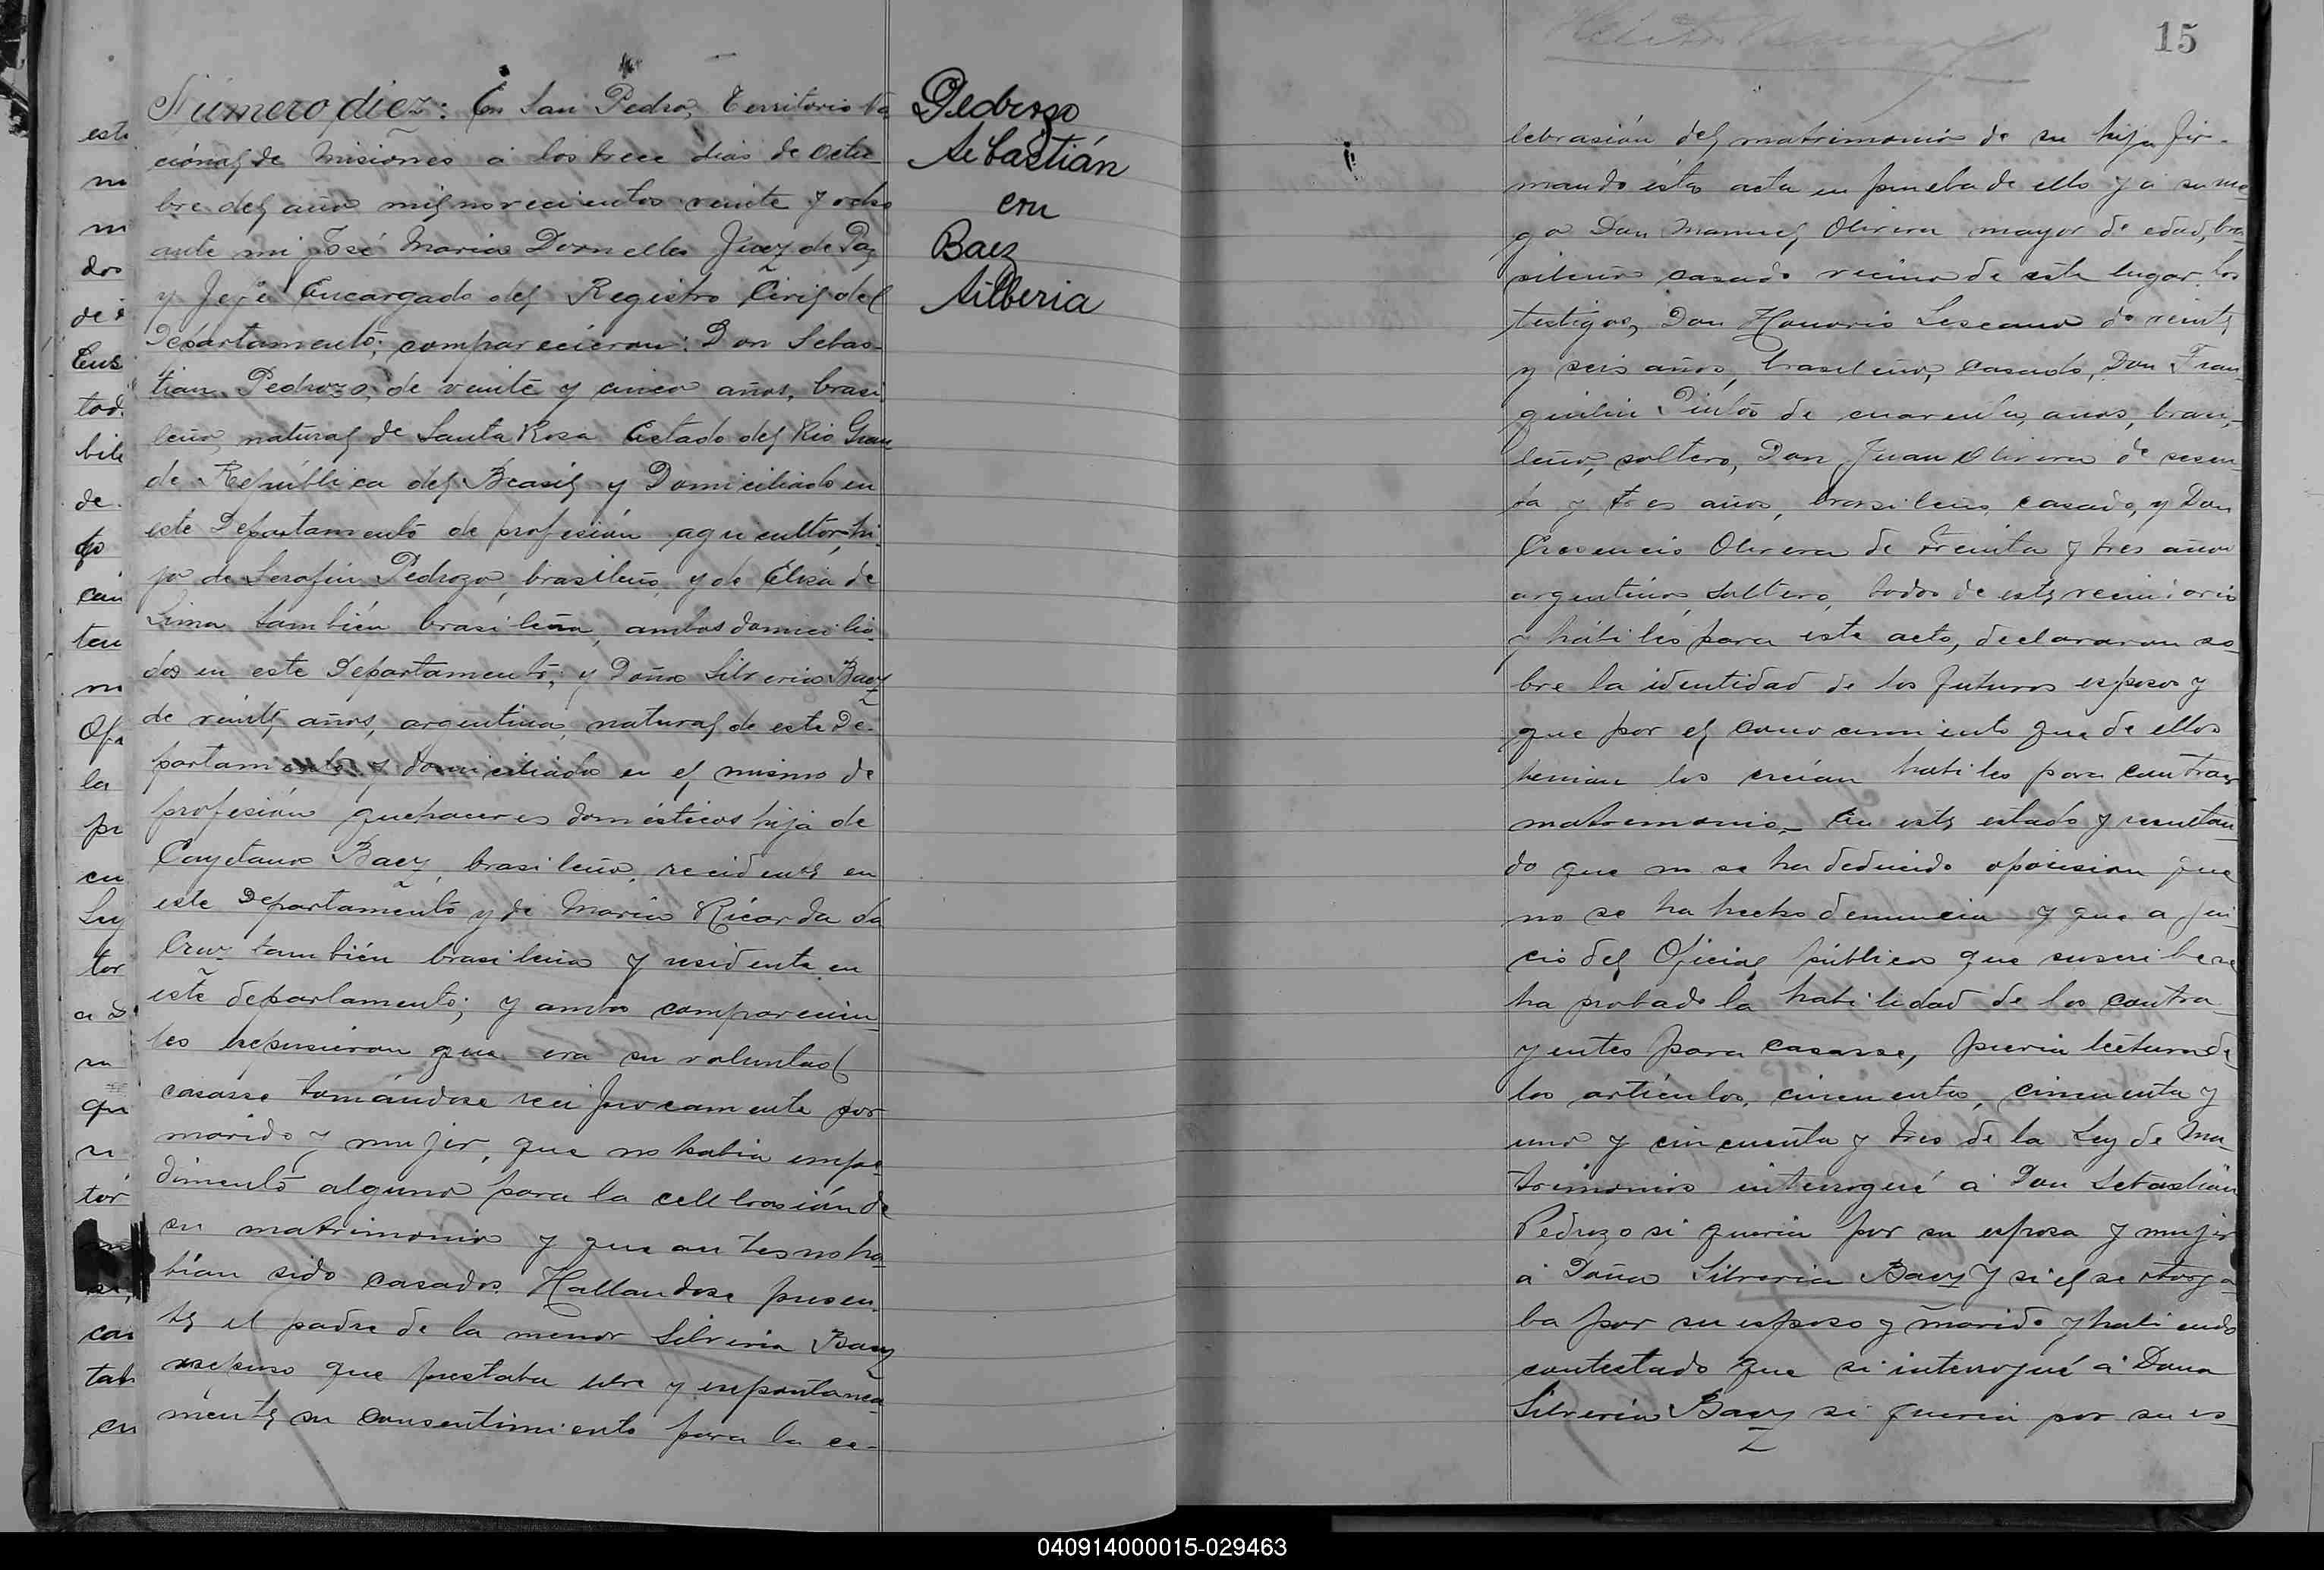 Número diez: En San Pedro, Territorio Na
cional de Misiones á los trece dias de Octu
bre del año mil novecientos veinte y ocho
ante mi José Maria Dornelles Juez de Paz
y Jefe Encargado del Registro Civil del
Departamento; comparecieron: Don Sebas-
tian Pedrozo, de veinte y cinco años, brasi
leño, natural de Santa Rosa Estado del Rio Gran
de República del Brasil y Domiciliado en
este Departamento de profesión agricultor, hi-
jo de Serafin Pedrozo, brasileño, y de Elisa de
Lima también brasileña, ambos domicilia-
dos en este Departamento; y Doña Silveria Baez
de veinte años, argentina, natural de este De-
partamento y domiciliada en el mismo de
profesión quehaceres domésticos hija de
Cayetano Baez, brasileño, recidente en
este Departamento y de Maria Ricarda da
Cruz también brasileña y residente en
este departamento; y ambos comparecien-
tes expusieron que era su voluntad
casarse tomándose reciprocamente por
marido y mujer, que no habia impe-
dimento alguno para la cellebrasión de
su matrimonio y que antes no ha-
bian sido casados. Hallandose presen-
te el padre de la menor Silveria Baez
expuso que prestaba libre y espontanea
mente su consentimiento para la ce-
Pedrozo
Sebastián
con
Baez
Silberia
este
dos
tod
de
can
ten
la
en
Ley
tor
que
tor
cas
tab
en
15
lebrasión del matrimonio de su hija fir-
mando esta acta en prueba de ello y á su rue
go Don Manuel Olivera mayor de edad, bra-
sileño casado vecino de este lugar. Los
testigos, Don Honorio Lescano de veinte
y seis años, brasileño, casado, Don Fran-
quilin Pintos de cuarenta años, brasi-
leño, soltero, Don Juan Olivera de sesen-
ta y tres años, brasileño casado, y Don
Crecencio Olivera de treinta y tres años
argentino, soltero, todos de este vecindario
y hábiles para este acto, declararon so-
bre la identidad de los futuros esposos y
que por el conocimiento que de ellos
tenian los creían habiles para contraer
matremonio.- En este estado y resultan
do que no se ha deducido oposision que
no se ha hecho denuncia y que a jui-
cio del Oficial público que suscribe se
ha probado la habilidad de los contra-
yentes para casarse, previa lectura de
los artículos, cincuenta, cincuenta y
uno y cincuenta y tres de la Ley de Ma-
trimonio interrogué á Don Sebastián
Pedrozo si queria por su esposa y mujer
á Doña Silveria Baez y si el se otorga-
ba por su esposo y marido y habiendo
contestado que si interrogué á Dona
Silveria Baez si queria por su es-
040914000015-029463